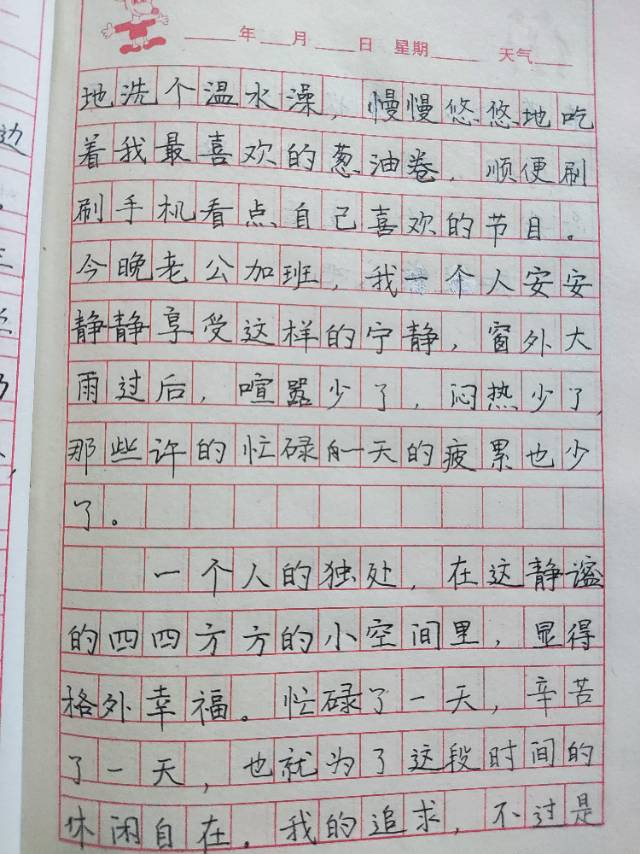 年 月 日 星期 天气
地洗个温水澡，慢慢悠悠地吃
着我最喜欢的葱油卷，顺便刷
刷手机看点自己喜欢的节目。
今晚老公加班，我一个人安安
静静享受这样的宁静，窗外大
雨过后，喧嚣少了，闷热少了，
那些许的忙碌一天的疲累也少
了。
一个人的独处，在这静谧
的四四方方的小空间里，显得
格外幸福。忙碌了一天，辛苦
了一天，也就为了这段时间的
休闲自在。我的追求，不过是